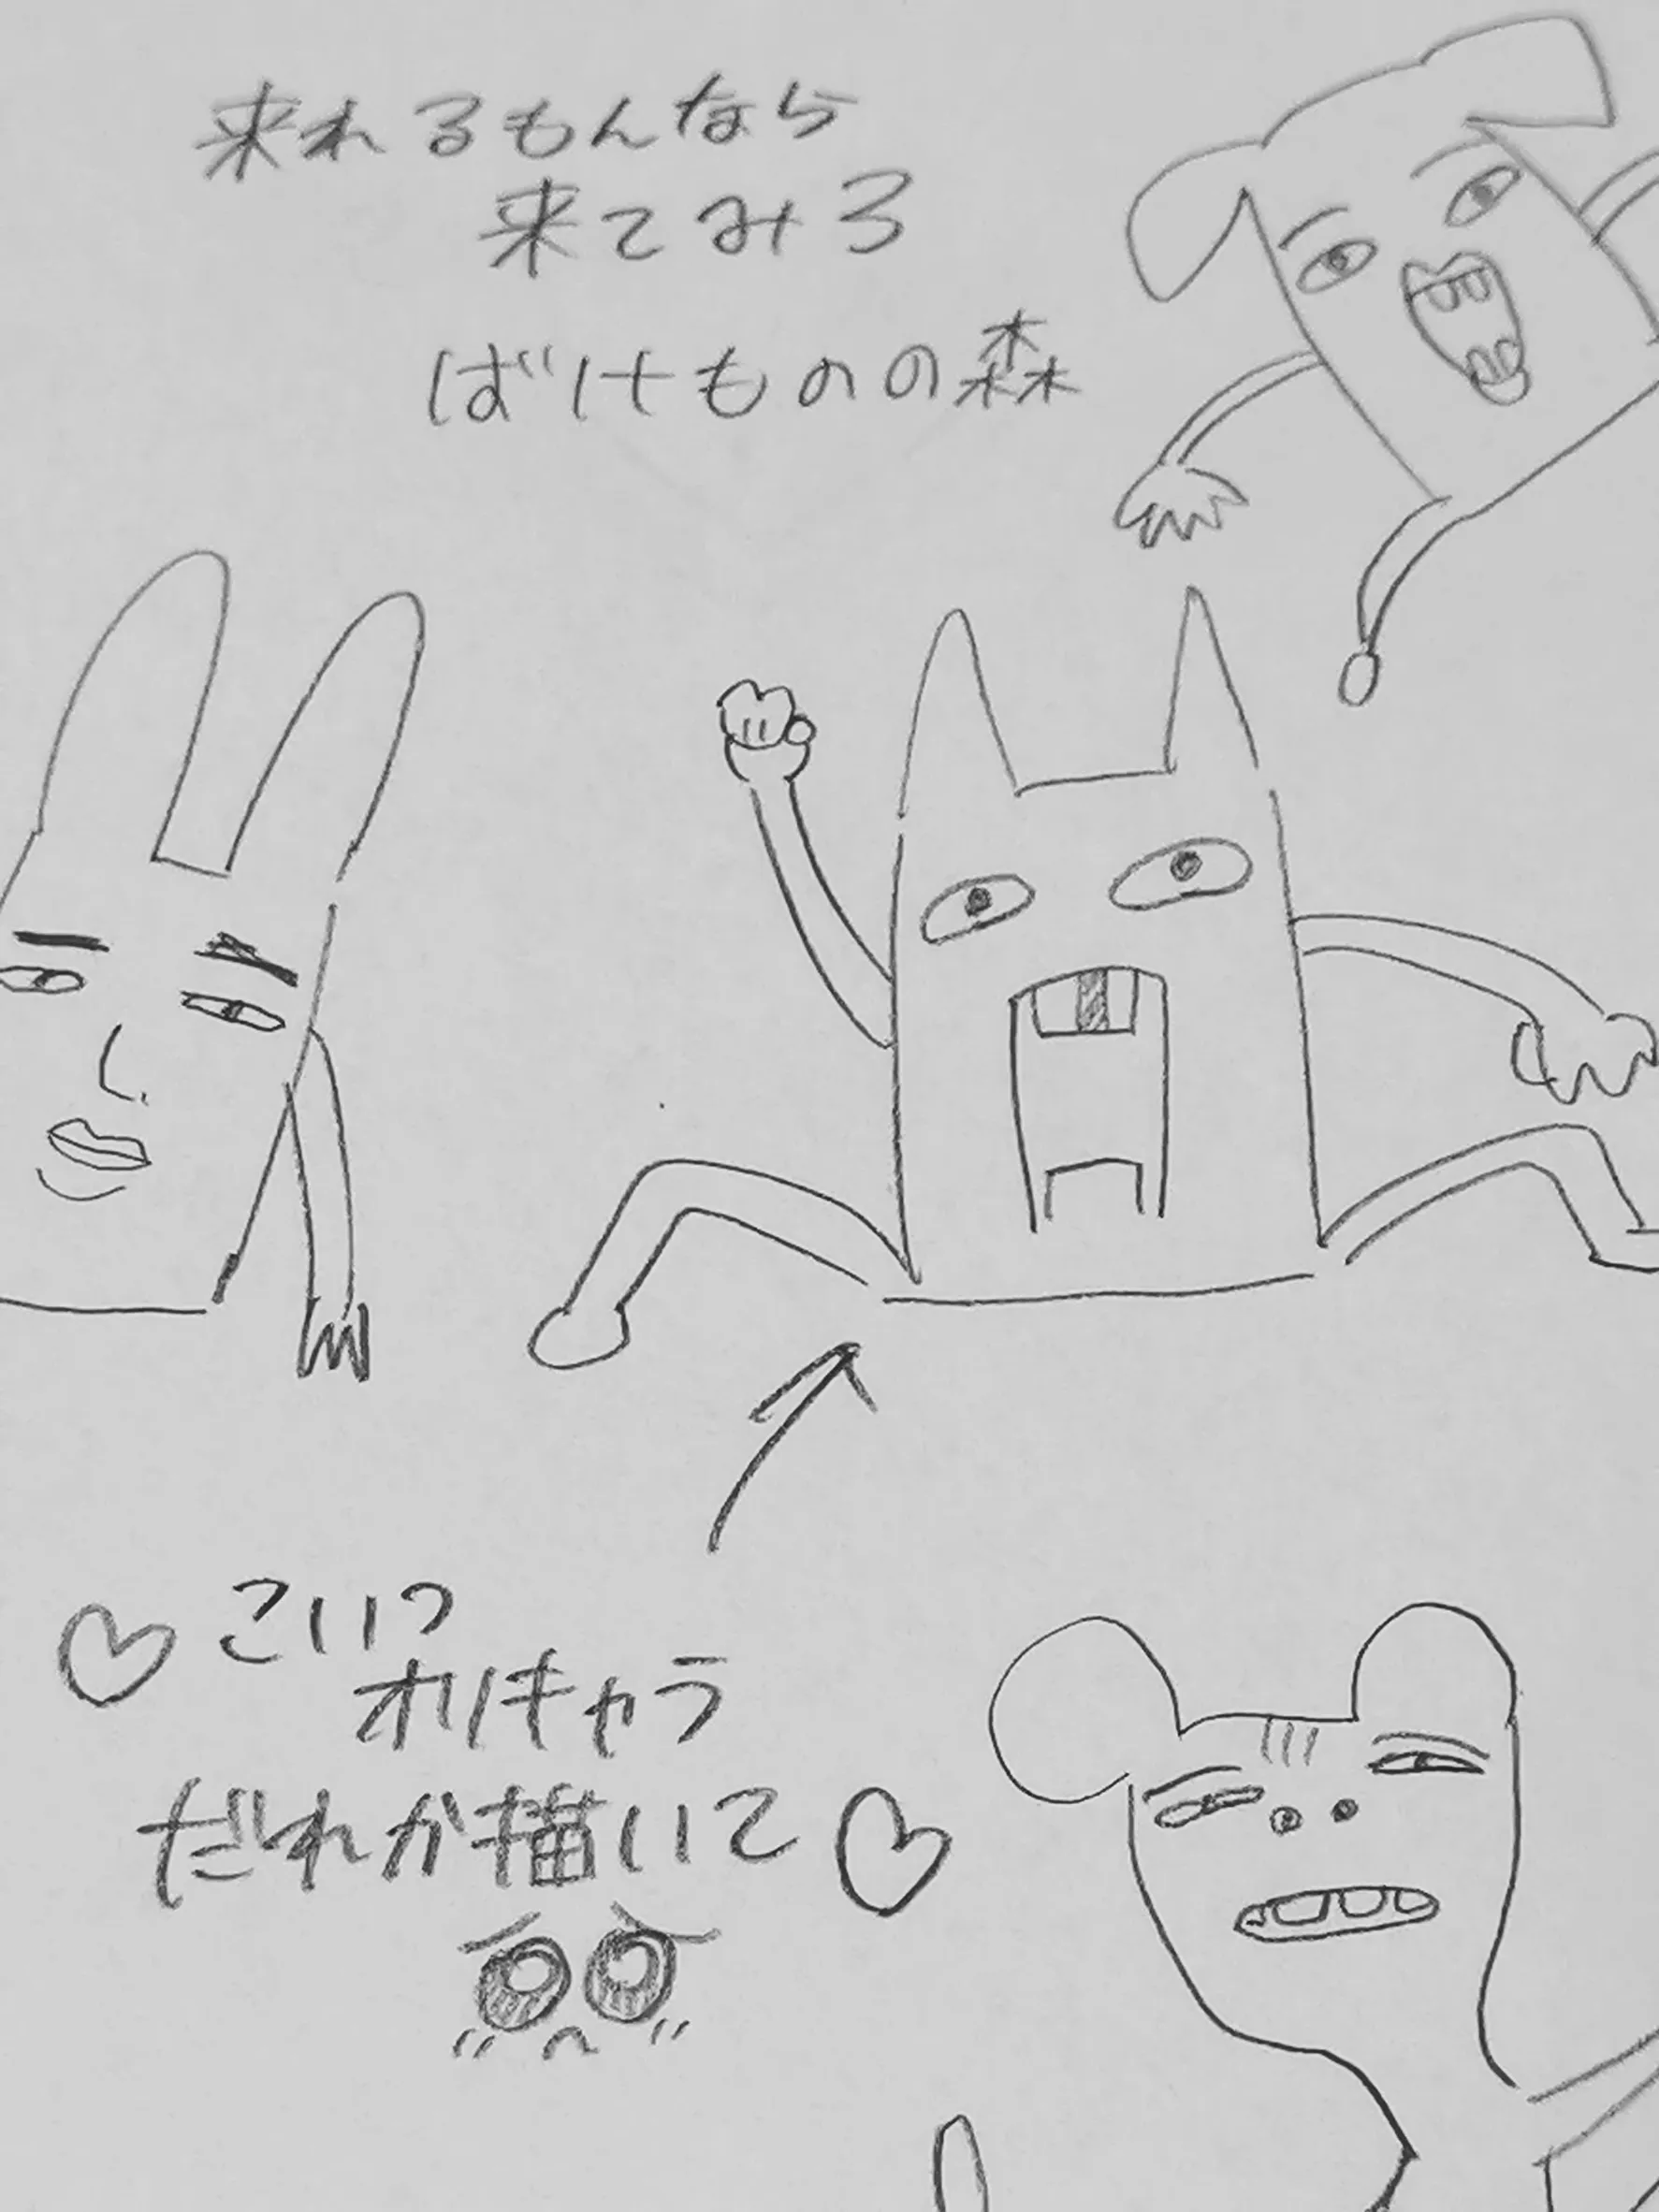 来れるもんなら
来てみろ
ばけものの森
♡こいつ
オリキャラ
だれか描いて♡